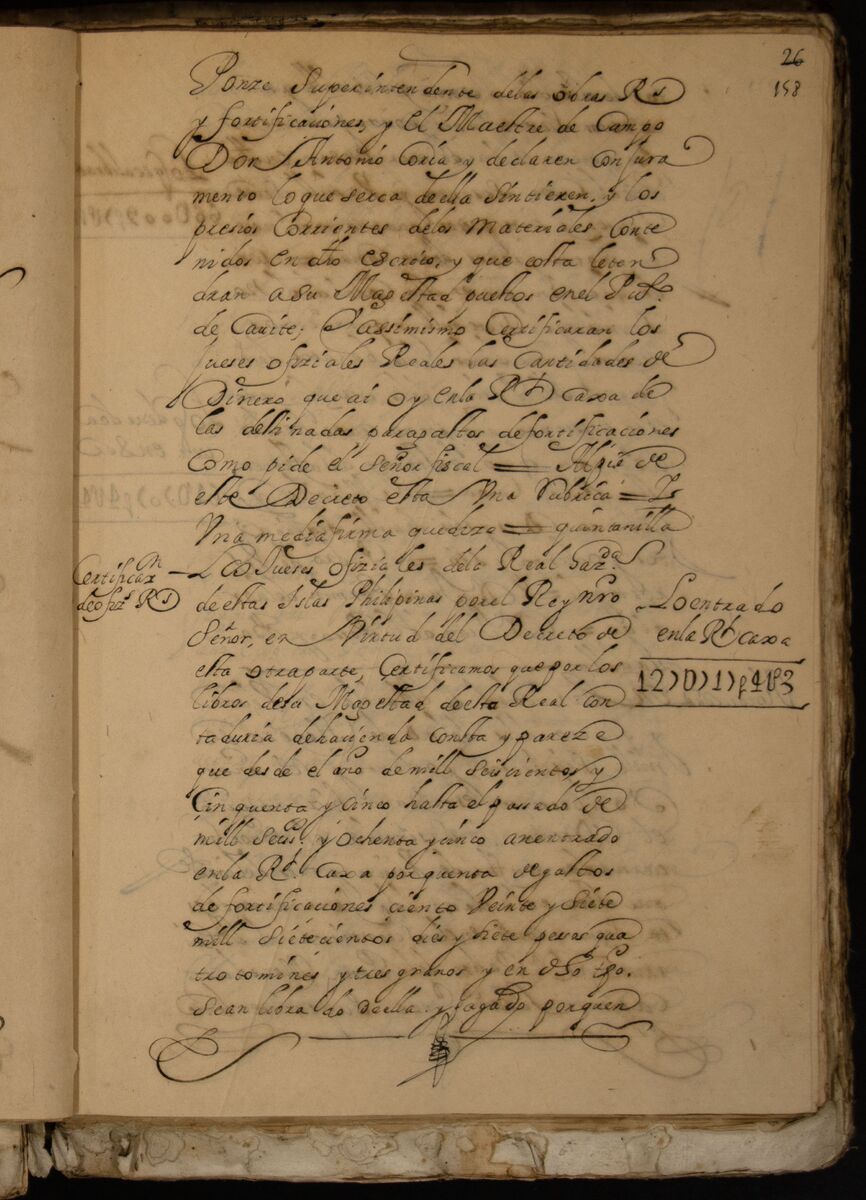 26
158
Ponze Superintendente delas obras Rs
y fortificaciones, y el Maestre de Campo
Don Antonio Coria y declaren con jura
mento lo que serca de ella sintieren, y los
presios Corrientes delos Materiales, conte
nidos en dho escrito, y que costa leten
dran a su Magestad puestos en el Pto.
de Cauite; Y assimismo Certificaran los
jueses ofiziales Reales las Cantidades de
Dinero que ai oy en la Rl Caxa de
las destinadas para gastos de fortificaciones
Como pide el Señor fiscal = Al pie de
este Decreto esta Vna Rubrica = Y
Vna media firma que dize = quintanilla
Certificazn
de ofizs Rs
Los Jueses ofiziales dela Real hazda
de estas Islas Philipinas por el Rey nro
Señor, en Virtud del Decreto de
esta otra parte, Certificamos que por los
libros de su Magestad de esta Real con
taduria de hacienda consta y pareze
que desde el año de mill seiscientos y
Cinquenta y cinco hasta el passado de
mill seiscs. y ochenta y cinco an entrado
en la Rl. Caxa por quenta de gastos
de fortificaciones ciento Veinte y siete
mill sietecientos dies y siete pesos qua
tro tomines y tres granos y en dho tpo.
se an libra do de ella y pagado por quen
Lo entrado
en la Rl caxa